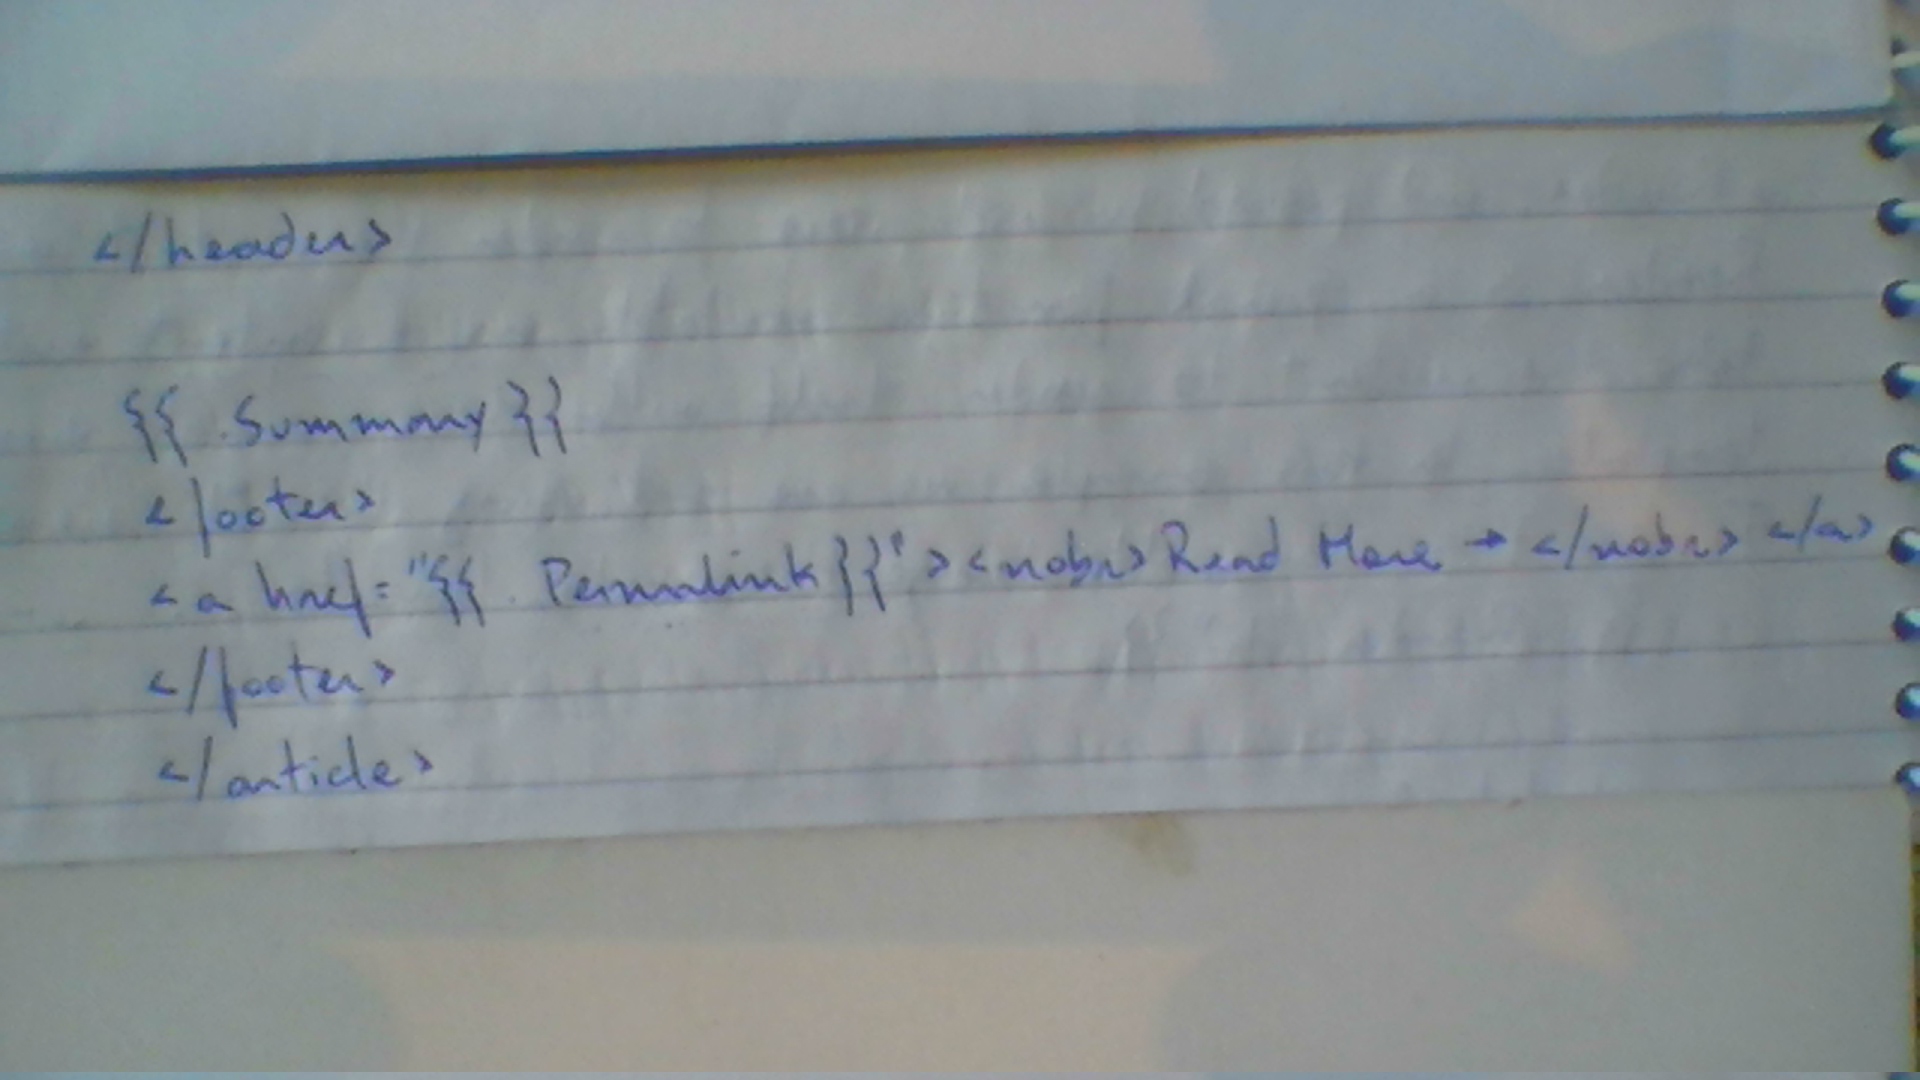 </header>
{{ .Summary }}
<footer>
<a href="{{ .Permalink }}"><nobr>Read More → </nobr> </a>
</footer>
</article>